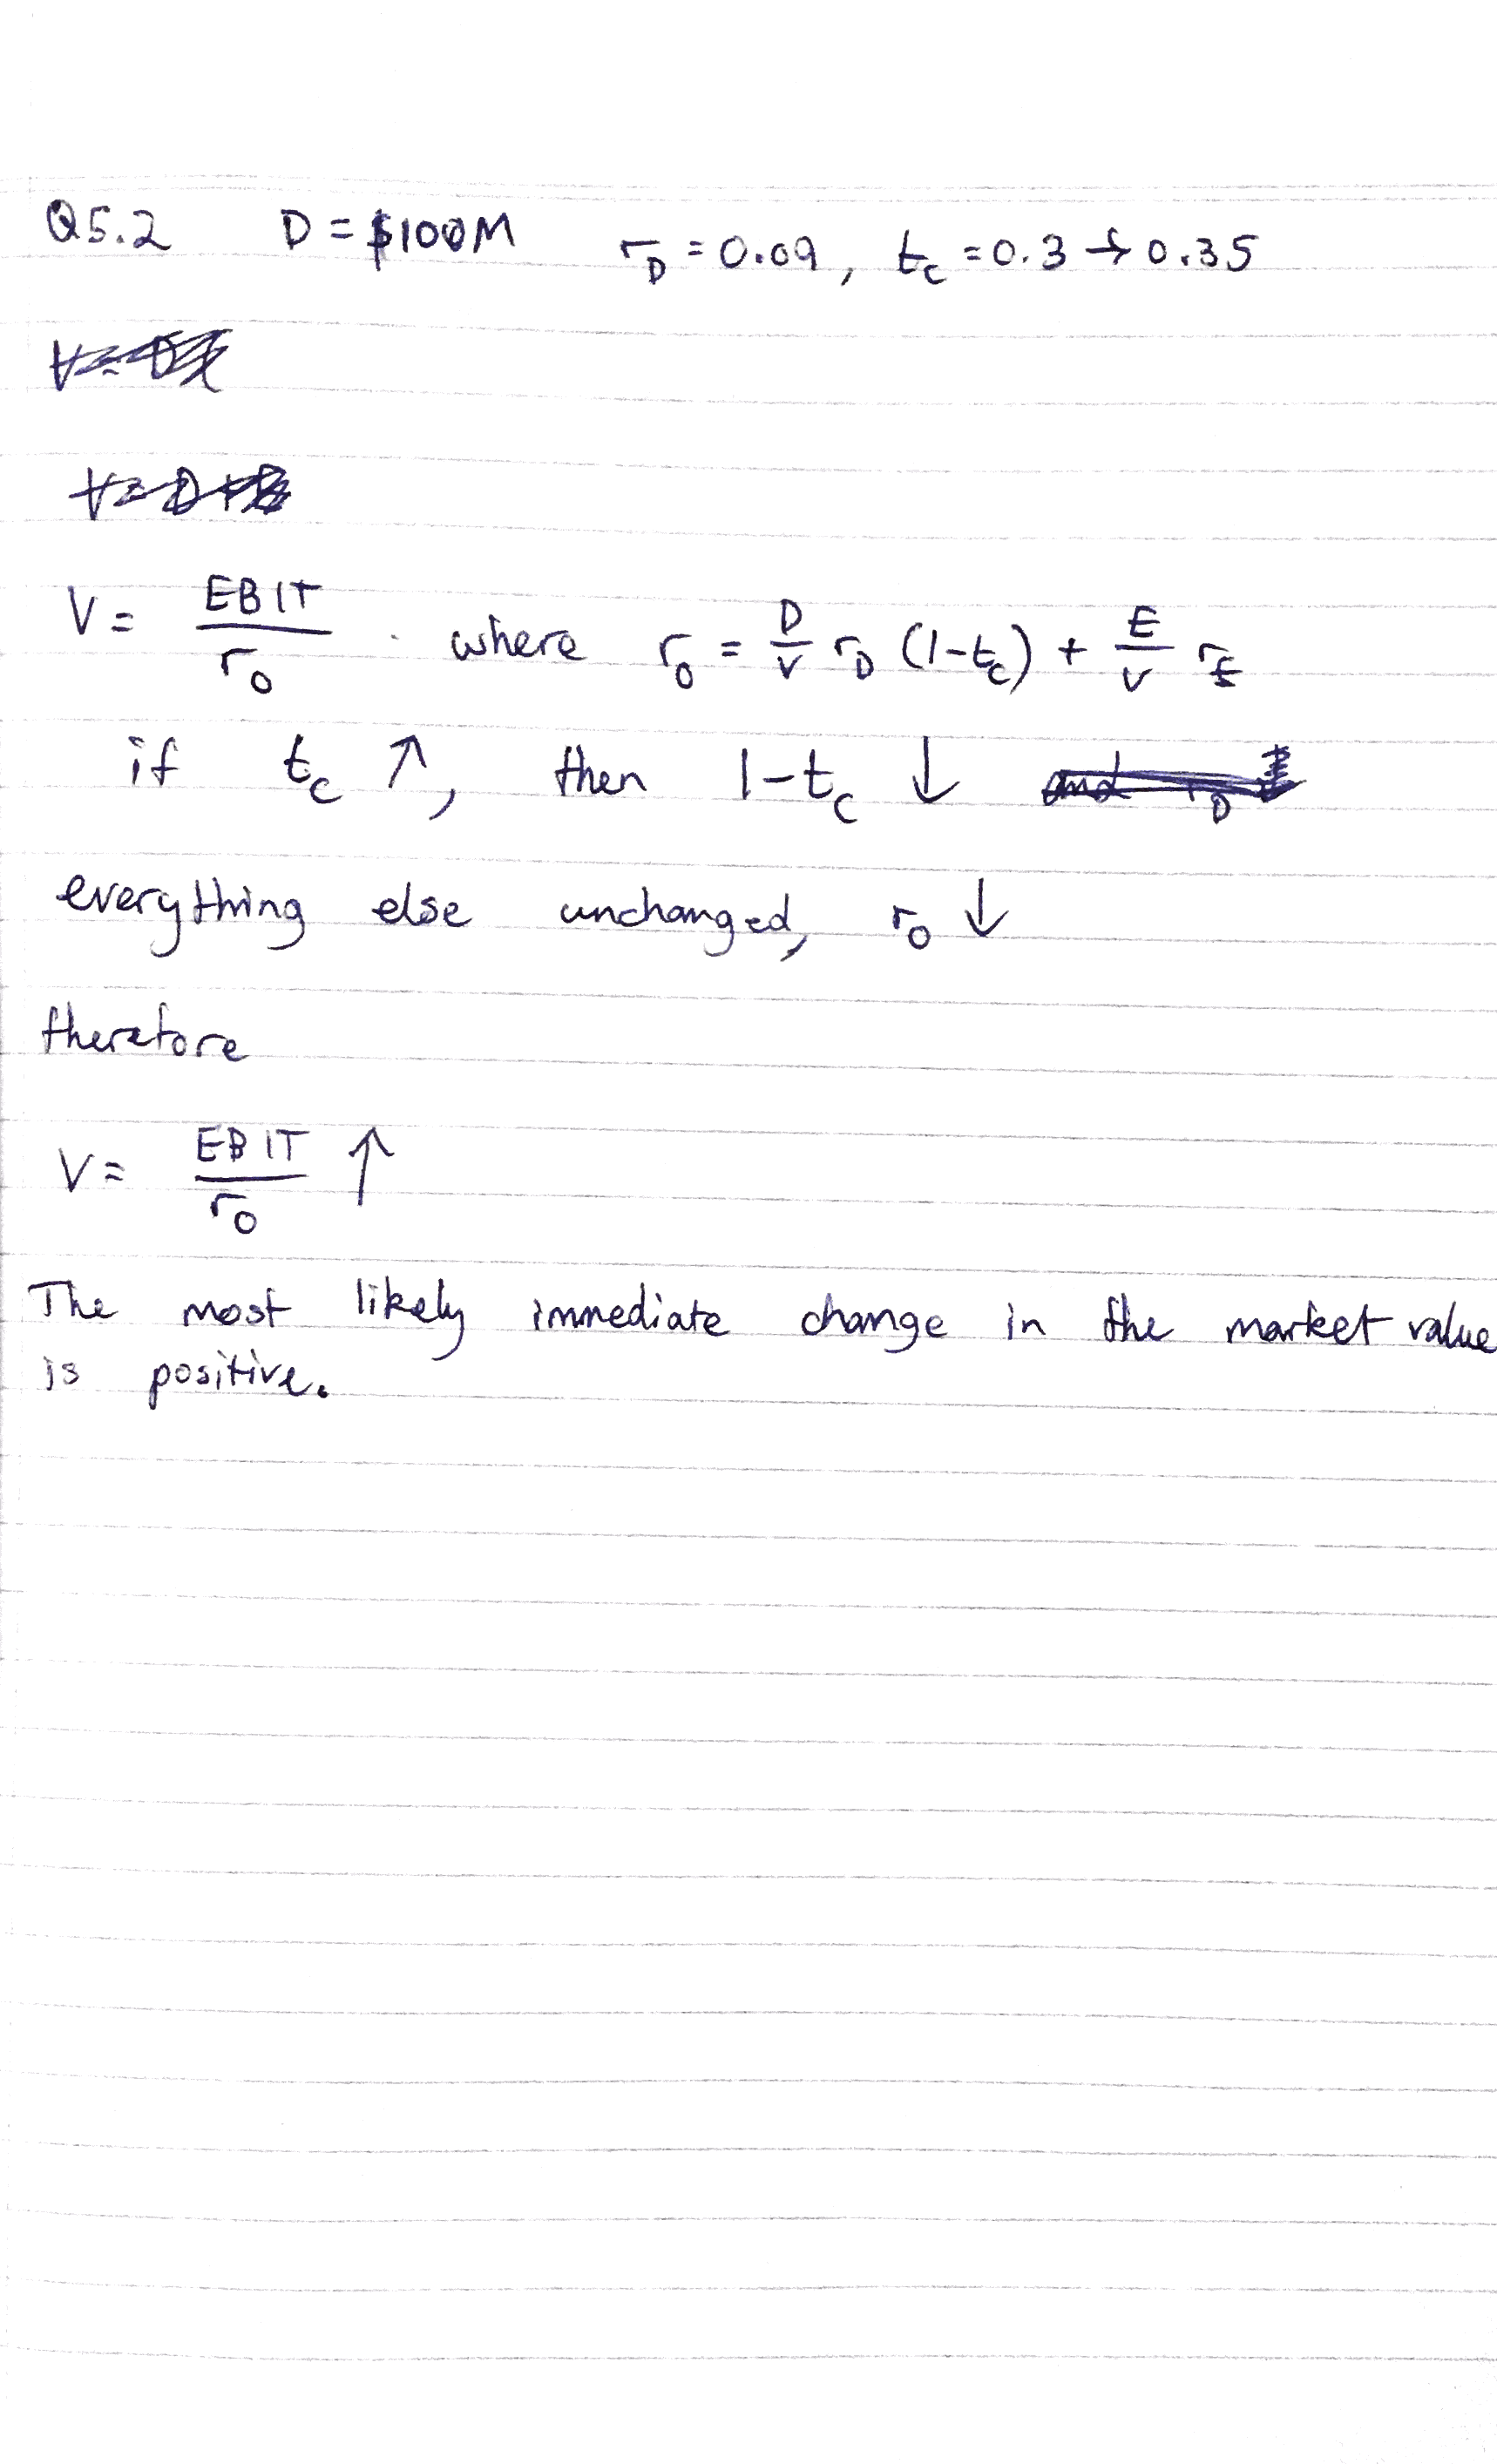 Q5.2 D = $100M r_D = 0.09, t_c = 0.3 → 0.35
V = EBIT / r_0 where r_0 = D/V r_D (1-t_c) + E/V r_E
if t_c ↑, then 1-t_c ↓
everything else unchanged, r_0 ↓
therefore
V = EBIT / r_0 ↑
The most likely immediate change in the market value
is positive.